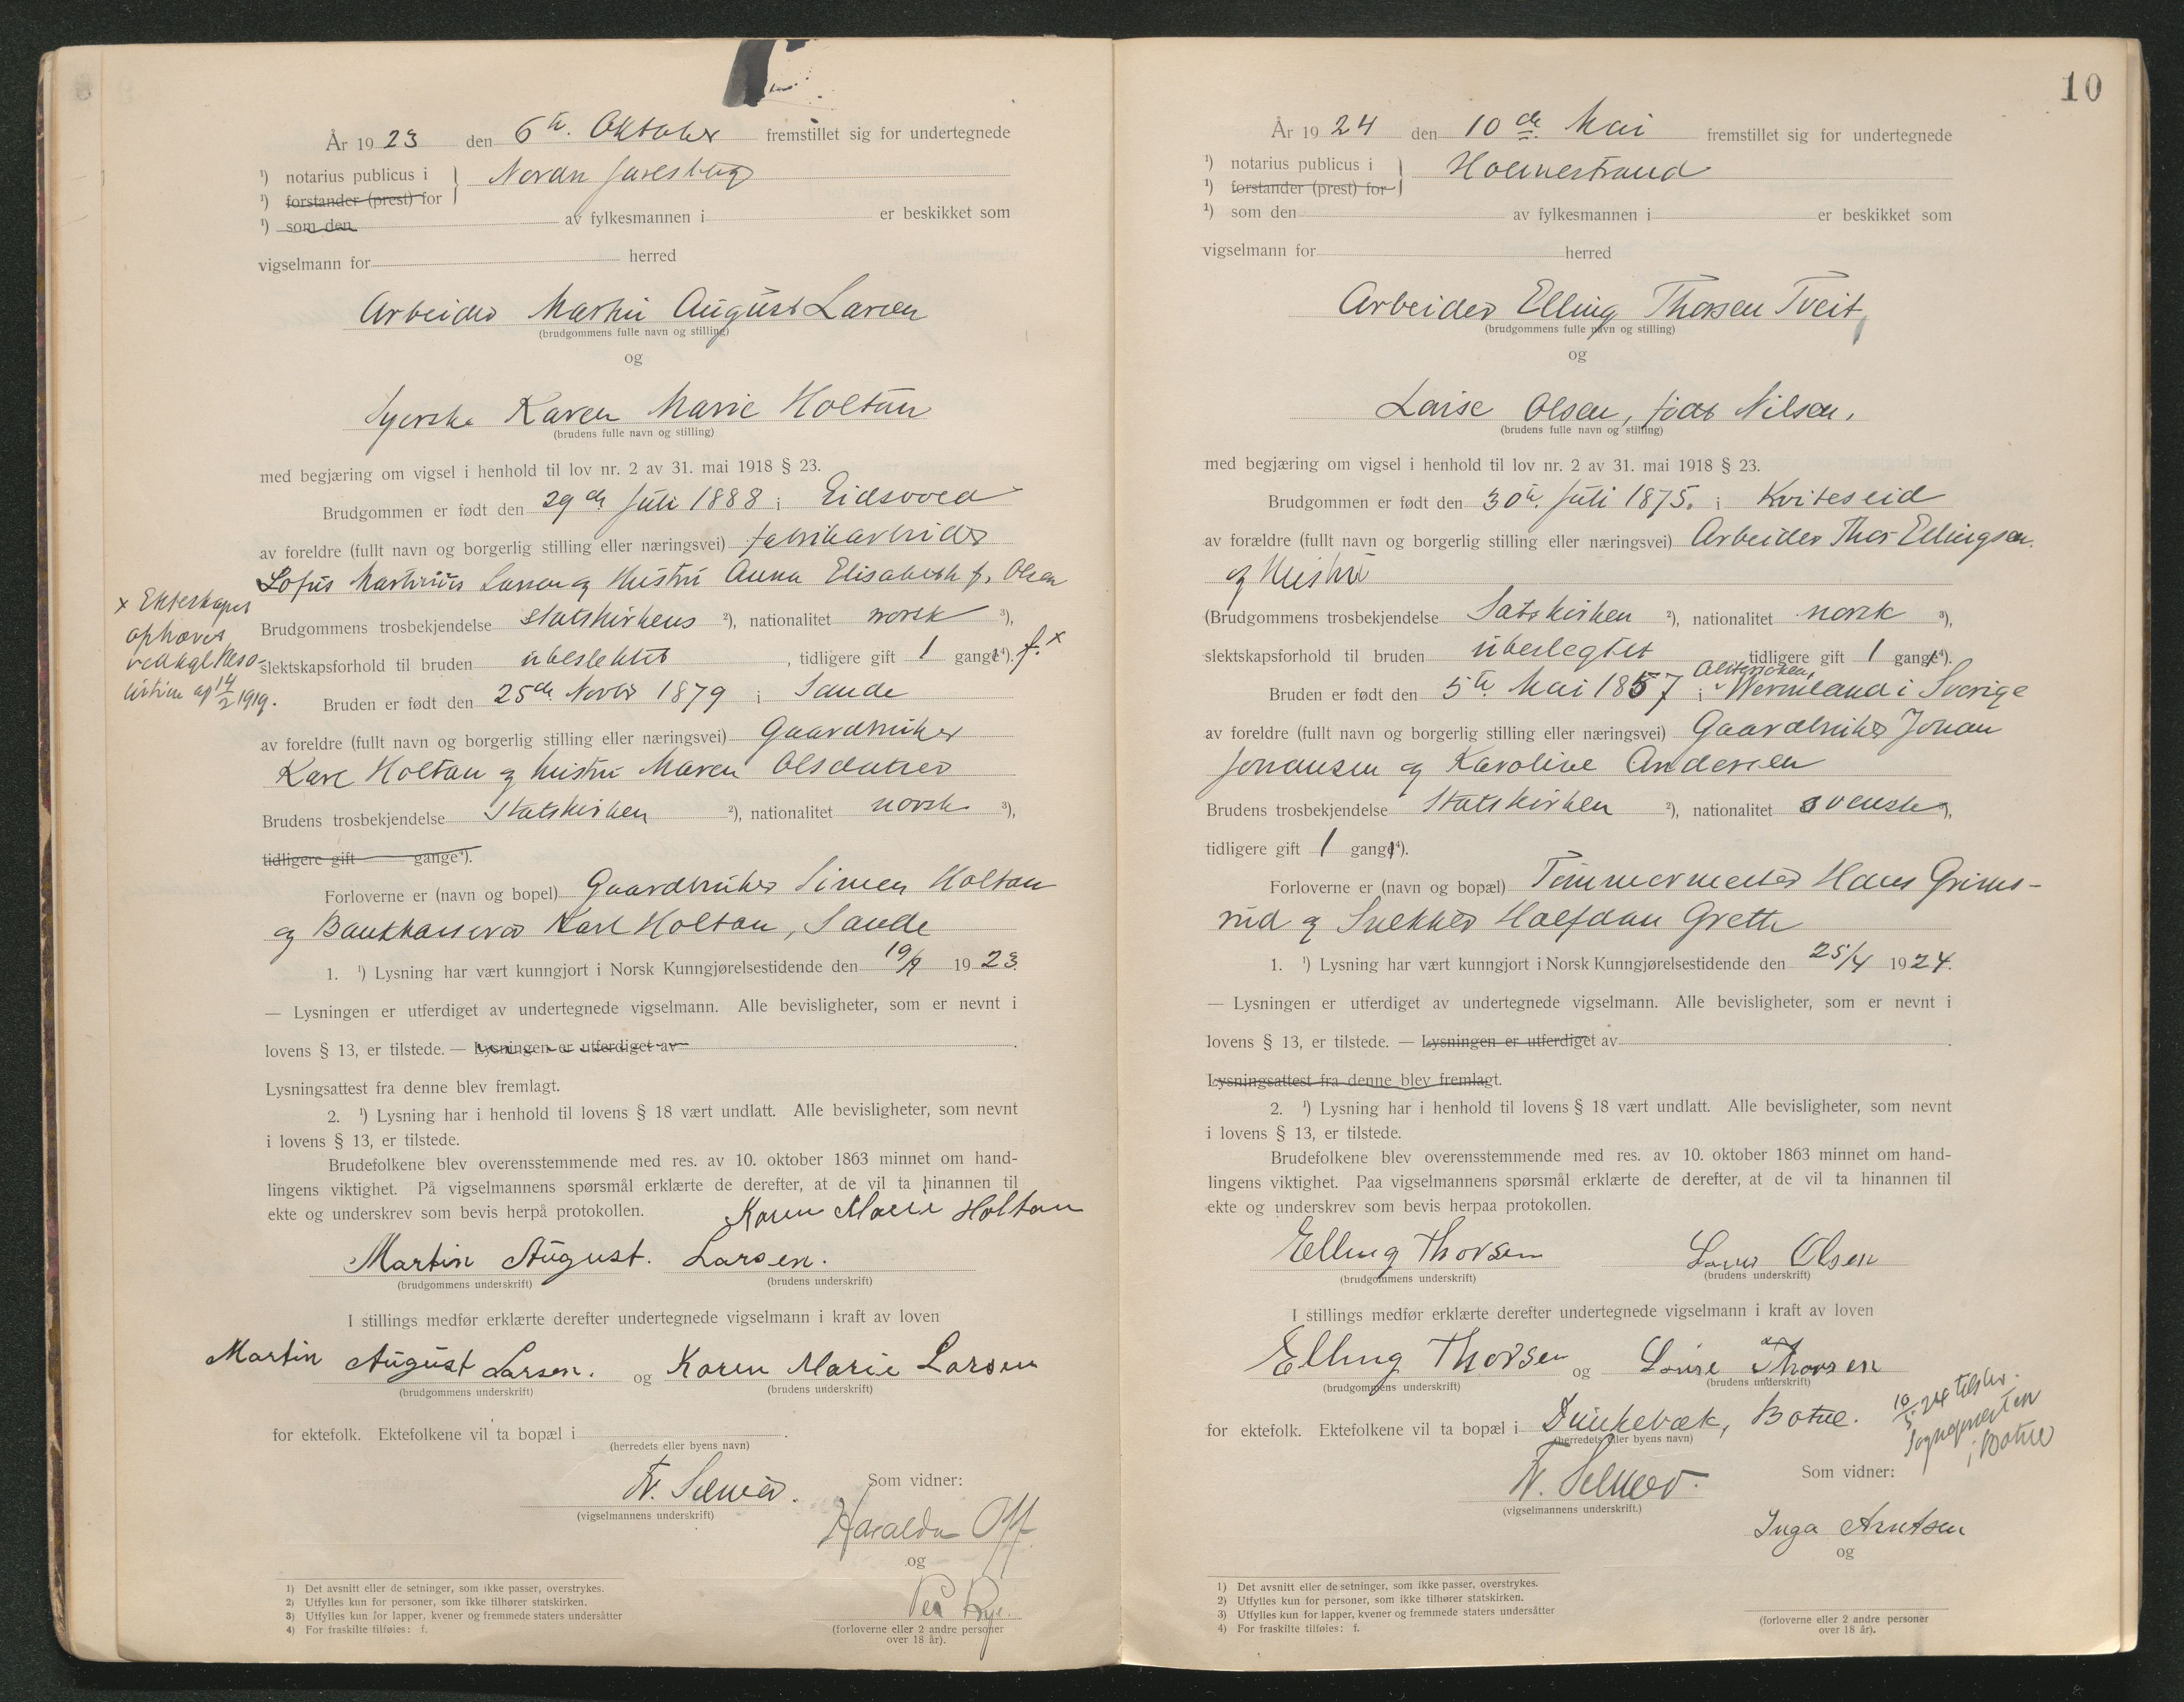 År 19 23 den 6te Oktober fremstillet sig for undertegnede
¹) notarius publicus i } Nordre Jarlsberg
¹) forstander (prest) for
¹) som den av fylkesmannen i er beskikket som
vigselmann for herred
Arbeider Martin August Larsen
(brudgommens fulle navn og stilling)
og
Syerske Karen Marie Holtan
(brudens fulle navn og stilling)
med begjæring om vigsel i henhold til lov nr. 2 av 31. mai 1918 § 23.
Brudgommen er født den 29de Juli 1888 i Eidsvold
av foreldre (fullt navn og borgerlig stilling eller næringsvei) fabrikarbeider
Martinius Larsen og Hustru Anna Elisabeth f. Olsen
x Ekteskapet
ophævet
ved kgl. Reso-
lution af 14/2 1919.
Brudgommens trosbekjendelse statskirkens ²), nationalitet norsk ³),
slektskapsforhold til bruden ubeslektet , tidligere gift 1 gang⁴). f. x
Bruden er født den 25de Novbr 1879 i Sande
av foreldre (fullt navn og borgerlig stilling eller næringsvei) Gaardbruker
Karl Holtan og hustru Maren Olsdatter
Brudens trosbekjendelse Statskirken ²), nationalitet norsk ³),
tidligere gift gange⁴).
Forloverne er (navn og bopel) Gaardbruker Simen Holtan
og Bankkasserer Karl Holtan, Sande
1. ¹) Lysning har vært kunngjort i Norsk Kunngjørelsestidende den 19/9 19 23.
— Lysningen er utferdiget av undertegnede vigselmann. Alle bevisligheter, som er nevnt i
lovens § 13, er tilstede. — Lysningen er utferdiget av .
Lysningsattest fra denne blev fremlagt.
2. ¹) Lysning har i henhold til lovens § 18 vært undlatt. Alle bevisligheter, som nevnt
i lovens § 13, er tilstede.
Brudefolkene blev overensstemmende med res. av 10. oktober 1863 minnet om hand-
lingens viktighet. På vigselmannens spørsmål erklærte de derefter, at de vil ta hinannen til
ekte og underskrev som bevis herpå protokollen. Karen Marie Holtan
Martin August. Larsen.
(brudgommens underskrift) (brudens underskrift)
I stillings medfør erklærte derefter undertegnede vigselmann i kraft av loven
Martin August Larsen. og Karen Marie Larsen
(brudgommens underskrift) (brudens underskrift)
for ektefolk. Ektefolkene vil ta bopæl i .
(herredets eller byens navn)
N. Selmer. Som vidner:
(vigselmannens underskrift)
og
(forloverne eller 2 andre personer
over 18 år).
1) Det avsnitt eller de setninger, som ikke passer, overstrykes.
2) Utfylles kun for personer, som ikke tilhører statskirken.
3) Utfylles kun for lapper, kvener og fremmede staters undersåtter
4) For fraskilte tilføies: f.
10
År 19 24 den 10de Mai fremstillet sig for undertegnede
¹) notarius publicus i } Holmestrand
¹) forstander (prest) for
¹) som den av fylkesmannen i er beskikket som
vigselmann for herred
Arbeider Elling Thorsen Tveit,
(brudgommens fulle navn og stilling)
og
Lovise Olsen, født Nilsen.
(brudens fulle navn og stilling)
med begjæring om vigsel i henhold til lov nr. 2 av 31. mai 1918 § 23.
Brudgommen er født den 30te Juli 1875. i Kviteseid
av forældre (fullt navn og borgerlig stilling eller næringsvei) Arbeider Thor Ellingsen
og Hustru
(Brudgommens trosbekjendelse Satskirken ²), nationalitet norsk ³),
slektskapsforhold til bruden ubeslegtet tidligere gift 1 gang⁴).
Bruden er født den 5te Mai 1857 i Wermland i Sverige
av foreldre (fullt navn og borgerlig stilling eller næringsvei) Gaardbruker Johan
Johansen og Karoline Andersen
Brudens trosbekjendelse Statskirken ²), nationalitet svensk ³),
tidligere gift 1 gang⁴).
Forloverne er (navn og bopæl) Tømmermester Hans Grims-
rud og Snekker Halfdan Grette
1. ¹) Lysning har vært kunngjort i Norsk Kunngjørelsestidende den 25/4 19 24.
— Lysningen er utferdiget av undertegnede vigselmann. Alle bevisligheter, som er nevnt i
lovens § 13, er tilstede. — Lysningen er utferdiget av .
Lysningsattest fra denne blev fremlagt.
2. ¹) Lysning har i henhold til lovens § 18 vært undlatt. Alle bevisligheter, som nevnt
i lovens § 13, er tilstede.
Brudefolkene blev overensstemmende med res. av 10. oktober 1863 minnet om hand-
lingens viktighet. Paa vigselmannens spørsmål erklærte de derefter, at de vil ta hinannen til
ekte og underskrev som bevis herpaa protokollen.
Elling Thorsen Lovis Olsen
(brudgommens underskrift) (brudens underskrift)
I stillings medfør erklærte derefter undertegnede vigselmann i kraft av loven
Elling Thorsen og Lovise Thorsen
(brudgommens underskrift) (brudens underskrift)
for ektefolk. Ektefolkene vil ta bopæl i Dunkebæk, Botne.
(herredets eller byens navn)
10/5 24 tilskr.
Sogneprесten
i Botne
N. Selmer. Som vidner:
(vigselmannens underskrift.)
Inga Arntsen
og
(forloverne eller 2 andre personer
over 18 år).
1) Det avsnitt eller de setninger, som ikke passer, overstrykes.
2) Utfylles kun for personer, som ikke tilhører statskirken.
3) Utfylles kun for lapper, kvener og fremmede staters undersåtter
4) For fraskilte tilføies: f.